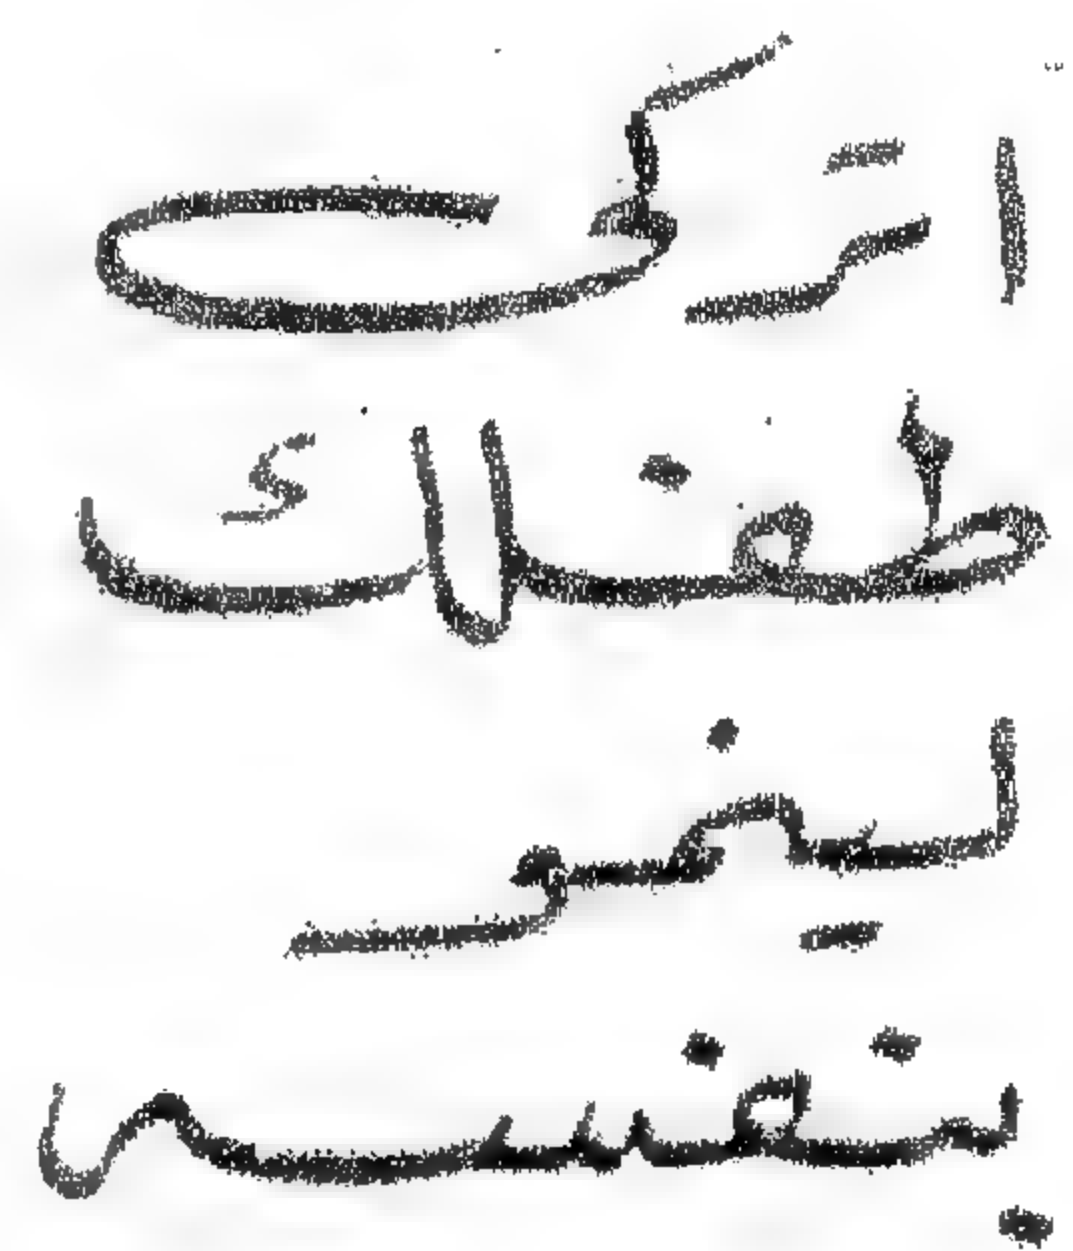 اتركى
طفلك
لينمو
بنفسه